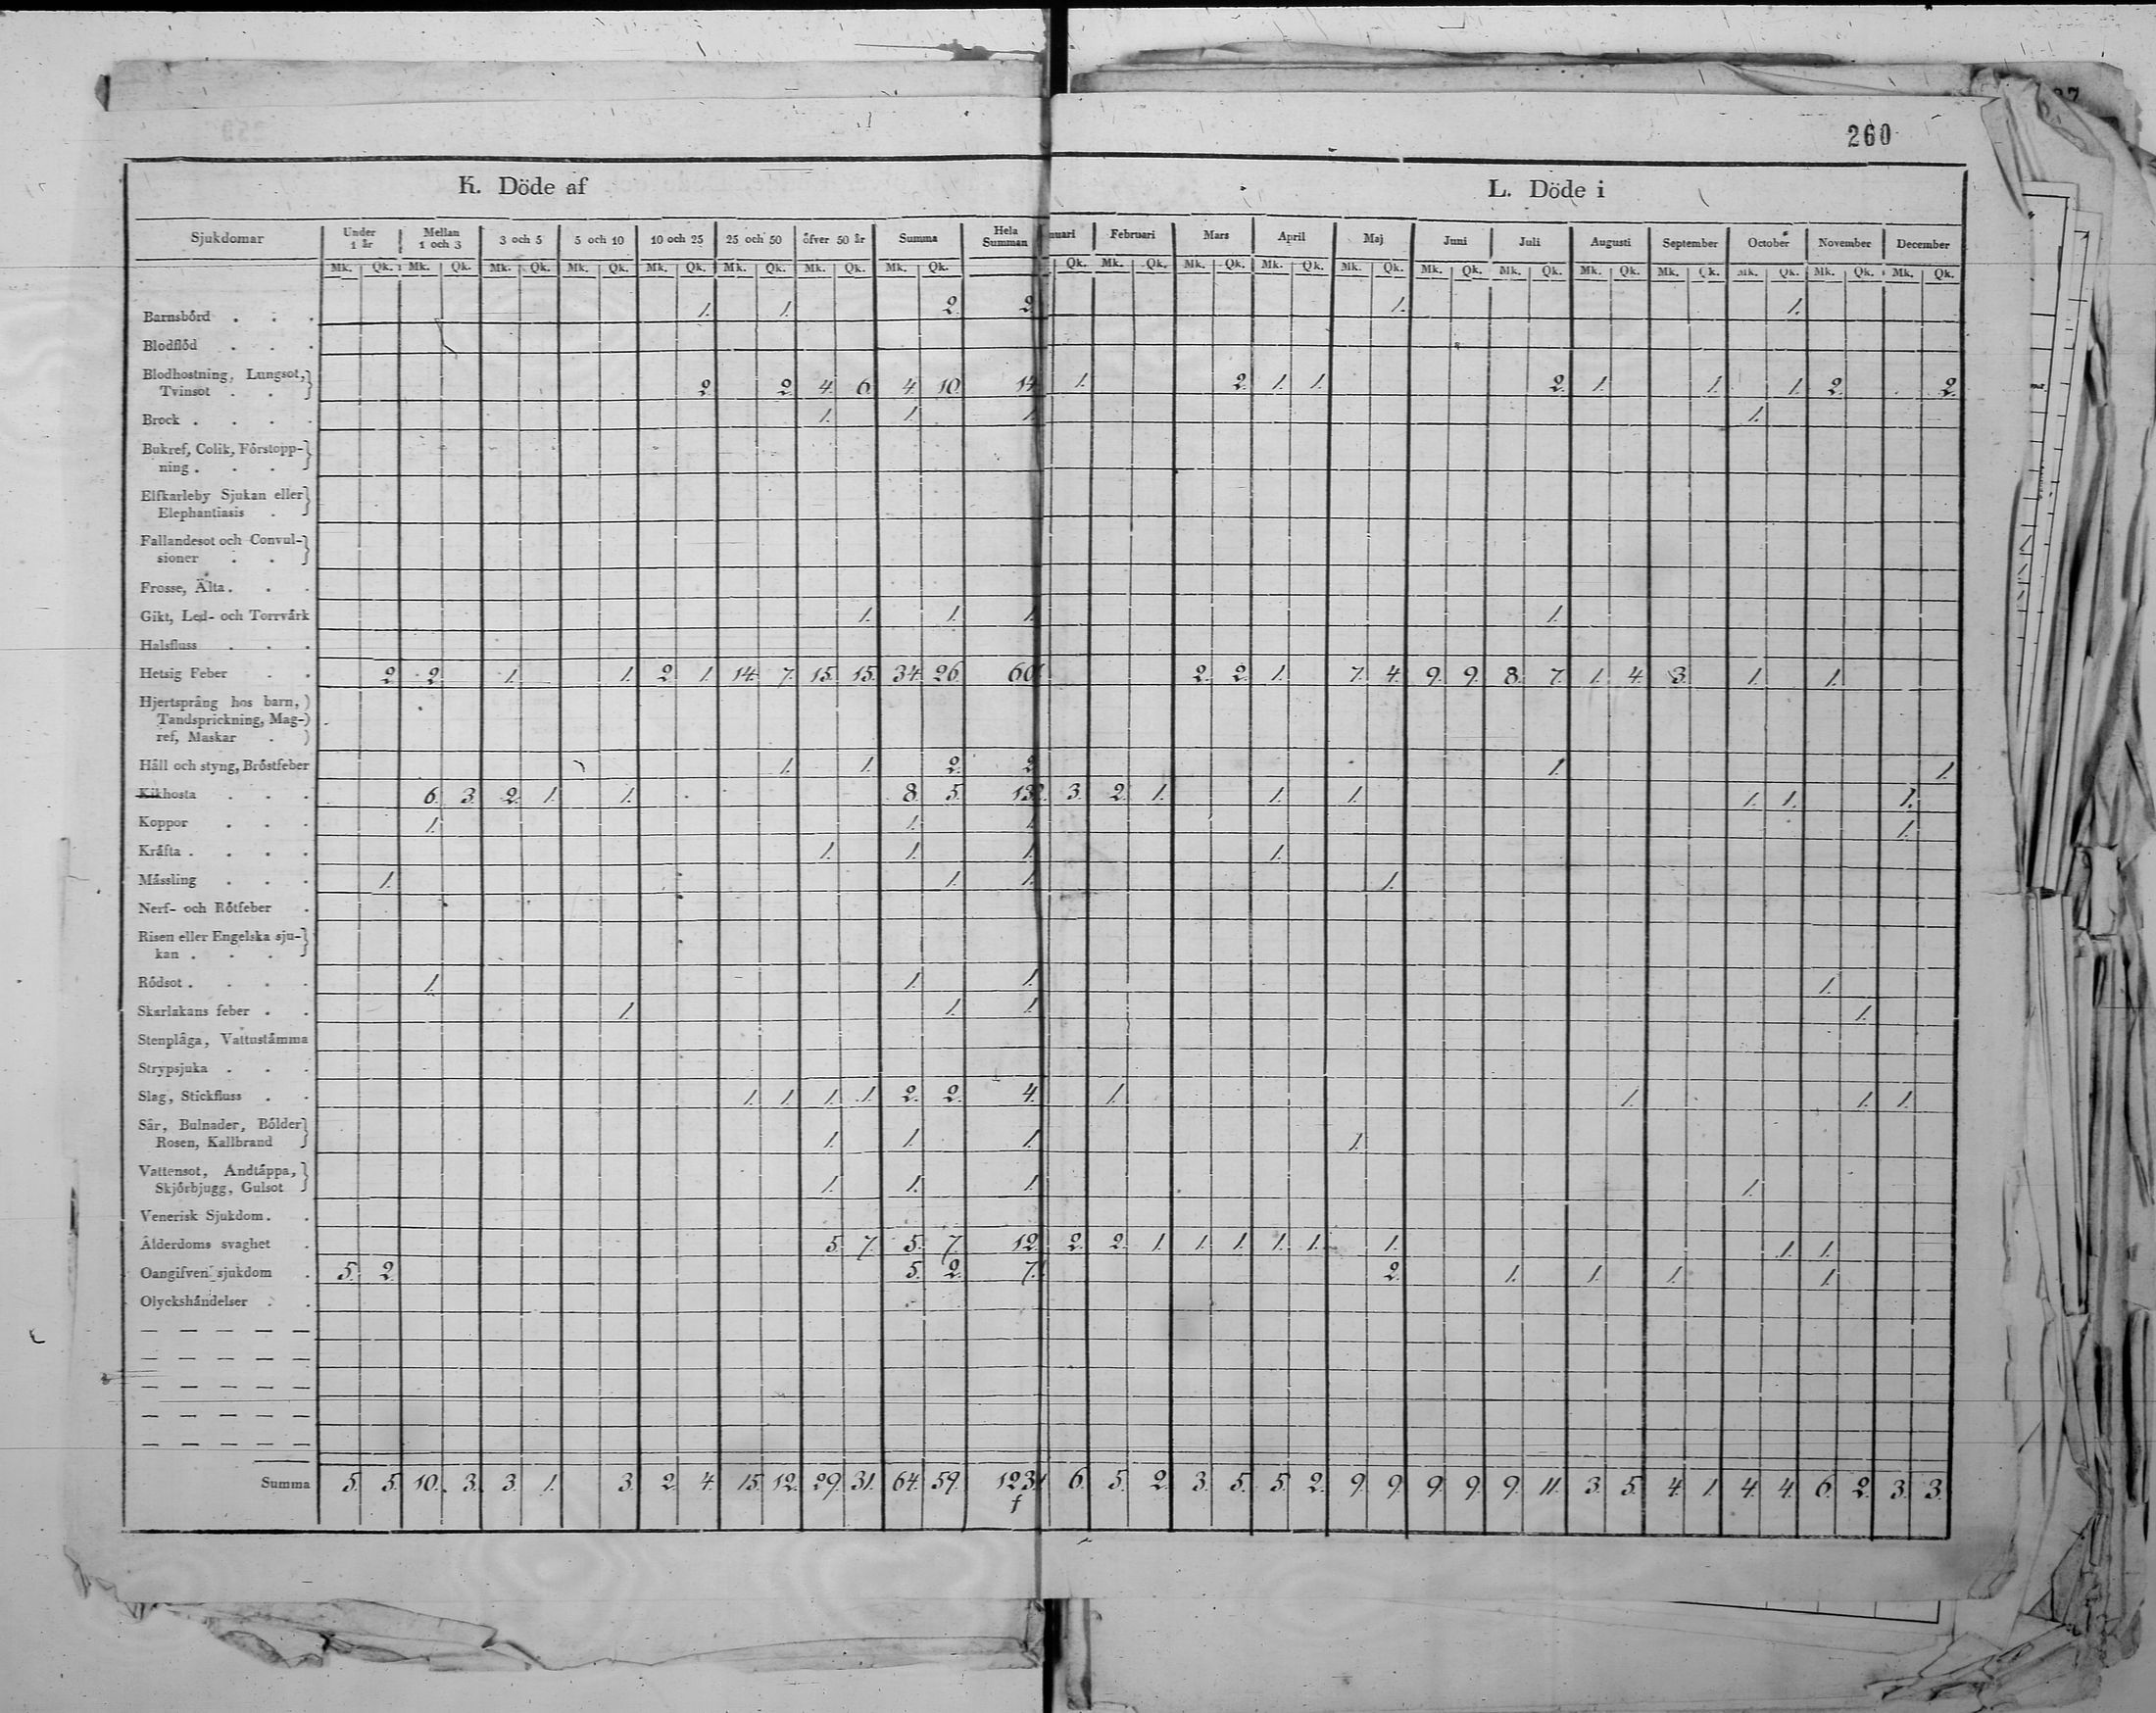 260
K. Döde af
L. Döde i
Sjukdomar Under 1 år Mellan 1 och 3 3 och 5 5 och 10 10 och 25 25 och 50 öfver 50 år Summa Hela Summan nuari Februari Mars April Maj Juni Juli Augusti September October November December
Mk. Qk. Mk. Qk. Mk. Qk. Mk. Qk. Mk. Qk. Mk. Qk. Mk. Qk. Mk. Qk. Qk. Mk. Qk. Mk. Qk. Mk. Qk. Mk. Qk. Mk. Qk. Mk. Qk. Mk. Qk. Mk. Qk. Mk. Qk. Mk. Qk. Mk. Qk.
Barnsbörd . . . 1. 1. 2. 2. 1. 1.
Blodflöd . . .
Blodhostning, Lungsot,
Tvinsot . . 2. 2. 4. 6. 4. 10. 14 1. 2. 1. 1. 2. 1. 1. 1. 2. 2.
Brock . . . . 1. 1. 1 1.
Bukref, Colik, Förstopp-
ning . . .
Elfkarleby Sjukan eller
Elephantiasis .
Fallandesot och Convul-
sioner . .
Frosse, Älta . . .
Gikt, Led- och Torrvärk 1. 1. 1. 1.
Halsfluss . . .
Hetsig Feber . . 2 2. 1. 1. 2. 1. 14. 7. 15. 15. 34. 26. 60. 2. 2. 1. 7. 4. 9. 9. 8. 7. 1. 4. 3. 1. 1.
Hjertsprång hos barn,
Tandsprickning, Mag-
ref, Maskar .
Håll och styng, Bröstfeber 1. 1. 2. 2 1. 1.
Kikhosta . . . 6. 3. 2. 1. 1. 8. 5. 13 3. 2. 1. 1. 1. 1. 1. 1.
Koppor . . . 1. 1. 1 1.
Kräfta . . . . 1. 1. 1. 1.
Mässling . . . 1. 1. 1. 1.
Nerf- och Rötfeber .
Risen eller Engelska sju-
kan . . .
Rödsot . . . . 1. 1. 1. 1.
Skarlakans feber . . 1. 1. 1. 1.
Stenplåga, Vattustämma
Strypsjuka . . .
Slag, Stickfluss . . 1. 1. 1. 1. 2. 2. 4. 1. 1. 1. 1.
Sår, Bulnader, Bölder
Rosen, Kallbrand 1. 1. 1. 1.
Vattensot, Andtäppa,
Skjörbjugg, Gulsot 1. 1. 1. 1.
Venerisk Sjukdom . .
Ålderdoms svaghet . 5. 7. 5. 7. 12. 2. 2. 1. 1. 1. 1. 1. 1. 1. 1.
Oangifven sjukdom . 5. 2. 5. 2. 7. 2. 1. 1. 1. 1.
Olyckshändelser . .
Summa 5. 5. 10. 3. 3. 1. 3. 2. 4. 15. 12. 29. 31. 64. 59. 123 6. 5. 2. 3. 5. 5. 2. 9. 9. 9. 9. 9. 11. 3. 5. 4. 1. 4. 4. 6. 2. 3. 3.